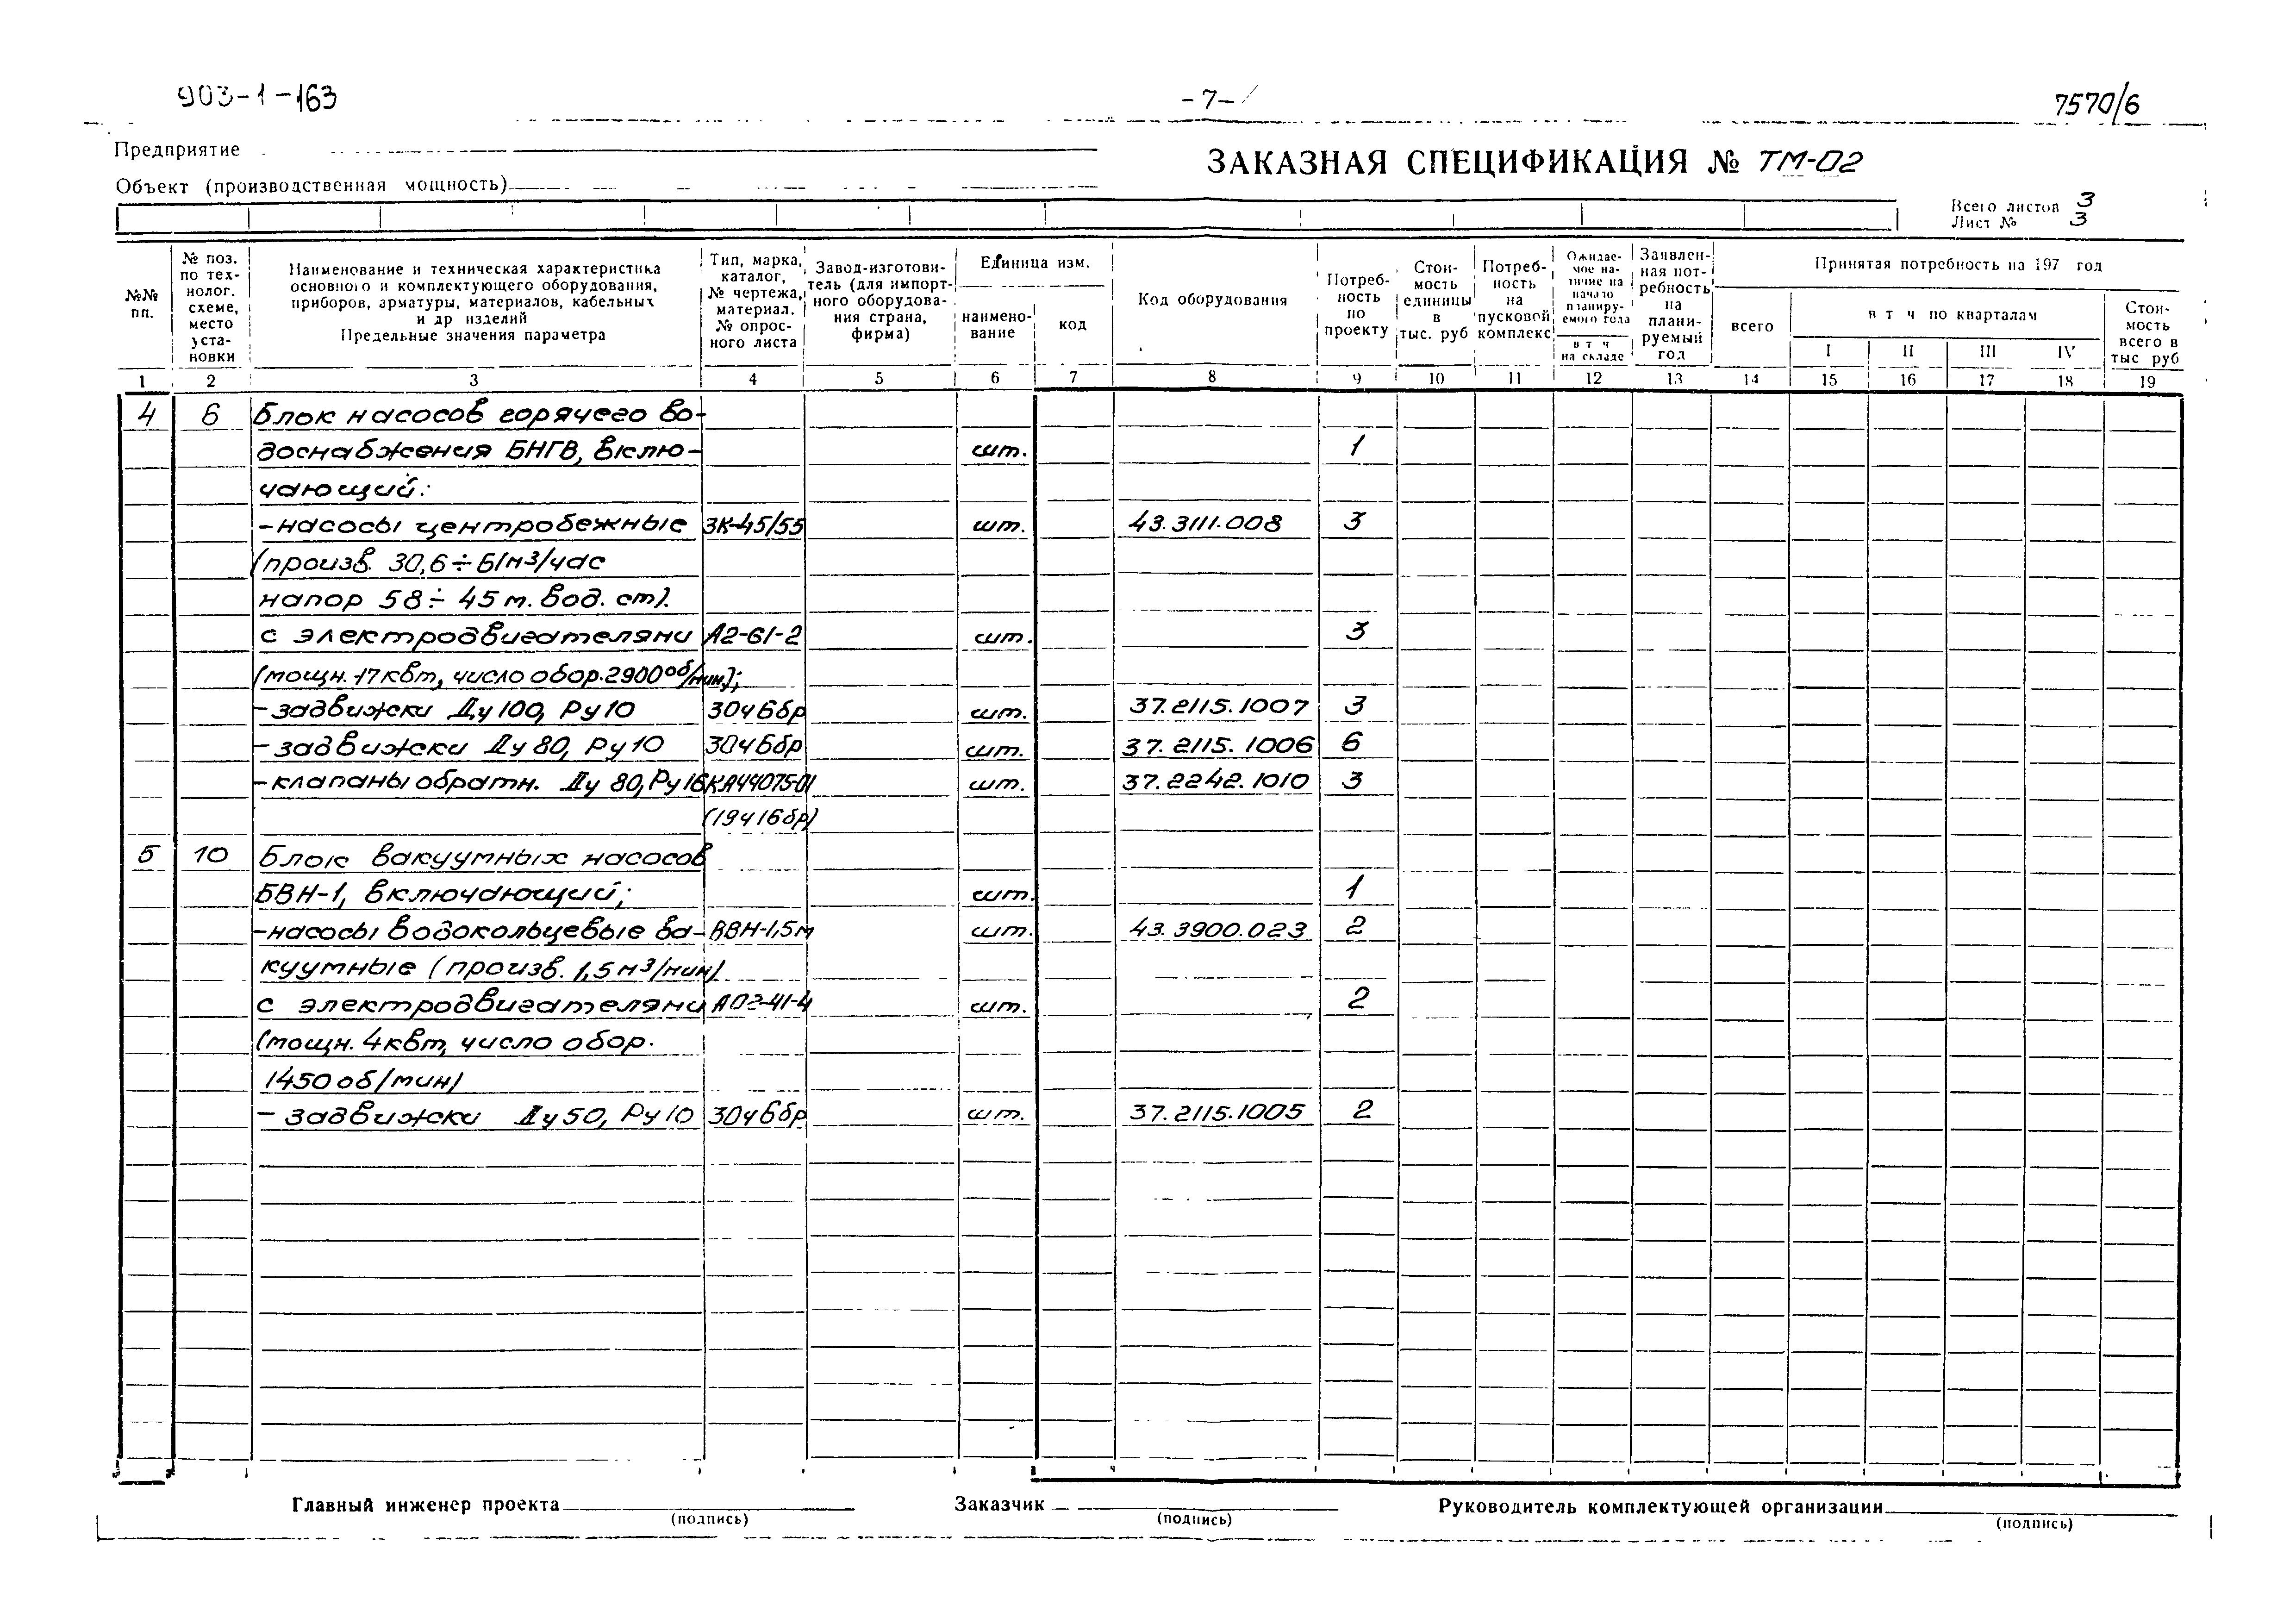 903-1-163
-7-
7570/6
Предприятие
ЗАКАЗНАЯ СПЕЦИФИКАЦИЯ № ТМ-02
Объект (производственная мощность)
Всего листов 3
Лист № 3
№№ пп.
№ поз. по тех-нолог. схеме, место уста-новки
Наименование и техническая характеристика основного и комплектующего оборудования, приборов, арматуры, материалов, кабельных и др изделий Предельные значения параметра
Тип, марка, каталог, № чертежа, материал. № опрос-ного листа
Завод-изготови-тель (для импорт-ного оборудова-ния страна, фирма)
Единица изм.
наимено-вание
код
Код оборудования
Потреб-ность по проекту
Стои-мость единицы в тыс. руб
Потреб-ность на пусковой комплекс
Ожидае-мое на-личие на начало планиру-емого года
в т ч на складе
Заявлен-ная пот-ребность на плани-руемый год
Принятая потребность на 197 год
всего
в т ч по кварталам
I II III IV
Стои-мость всего в тыс руб
1 2 3 4 5 6 7 8 9 10 11 12 13 14 15 16 17 18 19
4 6 Блок насосов горячего во-
доснабжения БНГВ, вклю- шт. 1
чающий:
-насосы центробежные 3К-45/55 шт. 43.3111.008 3
(произв. 30,6÷61м³/час
напор 58÷45м. вод. ст).
с электродвигателями А2-61-2 шт. 3
(мощн.-17квт, число обор.2900об/мин);
-задвижки Ду100, Ру10 30ч6бр шт. 37.2115.1007 3
-задвижки Ду80, Ру10 30ч6бр шт. 37.2115.1006 6
-клапаны обратн. Ду 80, Ру16 КА44075-01 шт. 37.2242.1010 3
(19ч16бр)
5 10 Блок вакуумных насосов
БВН-1, включающий; шт. 1
-насосы водокольцевые ва- ВВН-1,5м шт. 43.3900.023 2
куумные (произв. 1,5м³/мин)
с электродвигателями АО2-41-4 шт. 2
(мощн. 4квт, число обор.
1450об/мин)
- задвижки Ду50, Ру10 30ч6бр шт. 37.2115.1005 2
Главный инженер проекта
(подпись)
Заказчик
(подпись)
Руководитель комплектующей организации
(подпись)